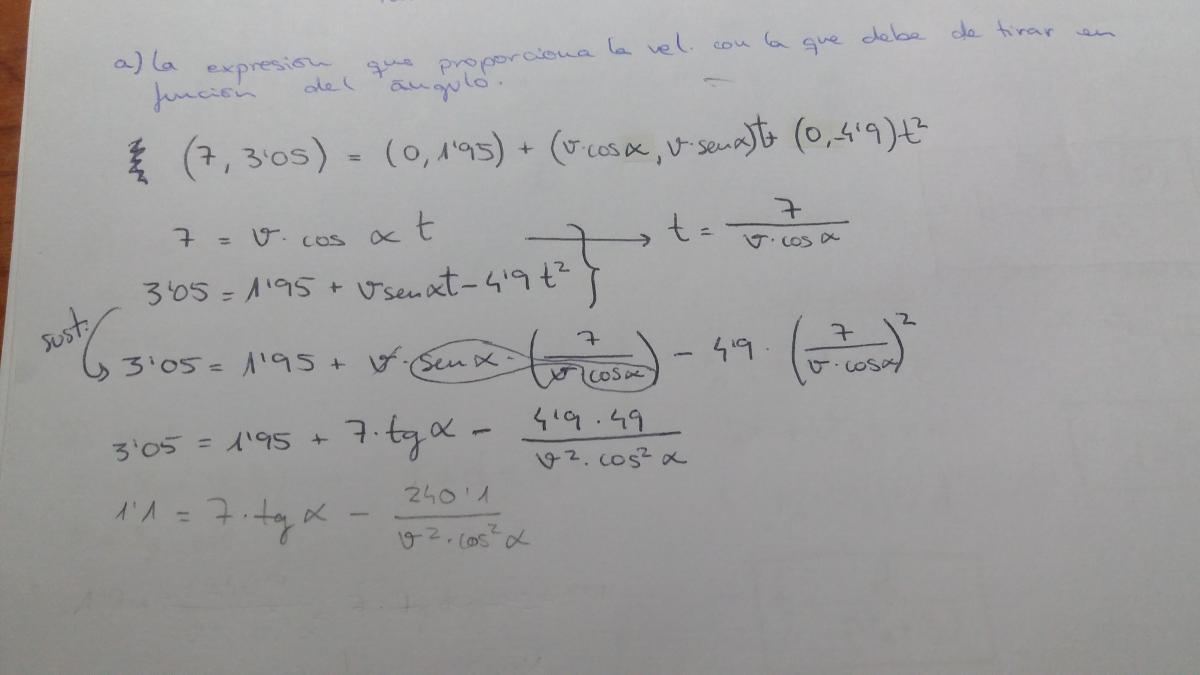 a) La expresión que proporciona la vel. con la que debe de tirar en
función del ángulo.
(7, 3'05) = (0, 1'95) + (v·cosα, v·senα)t + (0, -4'9)t²
7 = v· cos α t → t = 7 / v·cosα
3'05 = 1'95 + v senαt - 4'9 t²
sust.
3'05 = 1'95 + v·senα·(7 / v cosα) - 4'9 · (7 / v·cosα)²
3'05 = 1'95 + 7·tgα - 4'9·49 / v²·cos²α
1'1 = 7·tgα - 240'1 / v²·cos²α